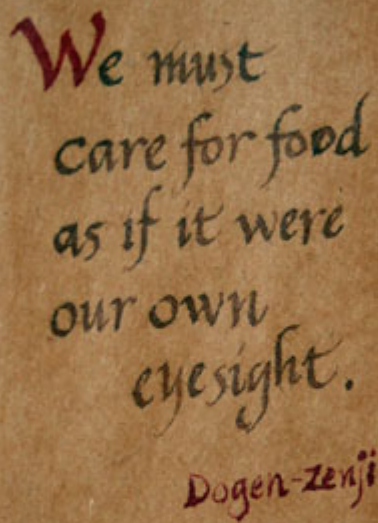 We must
care for food
as if it were
our own
eyesight.
Dogen-zenji